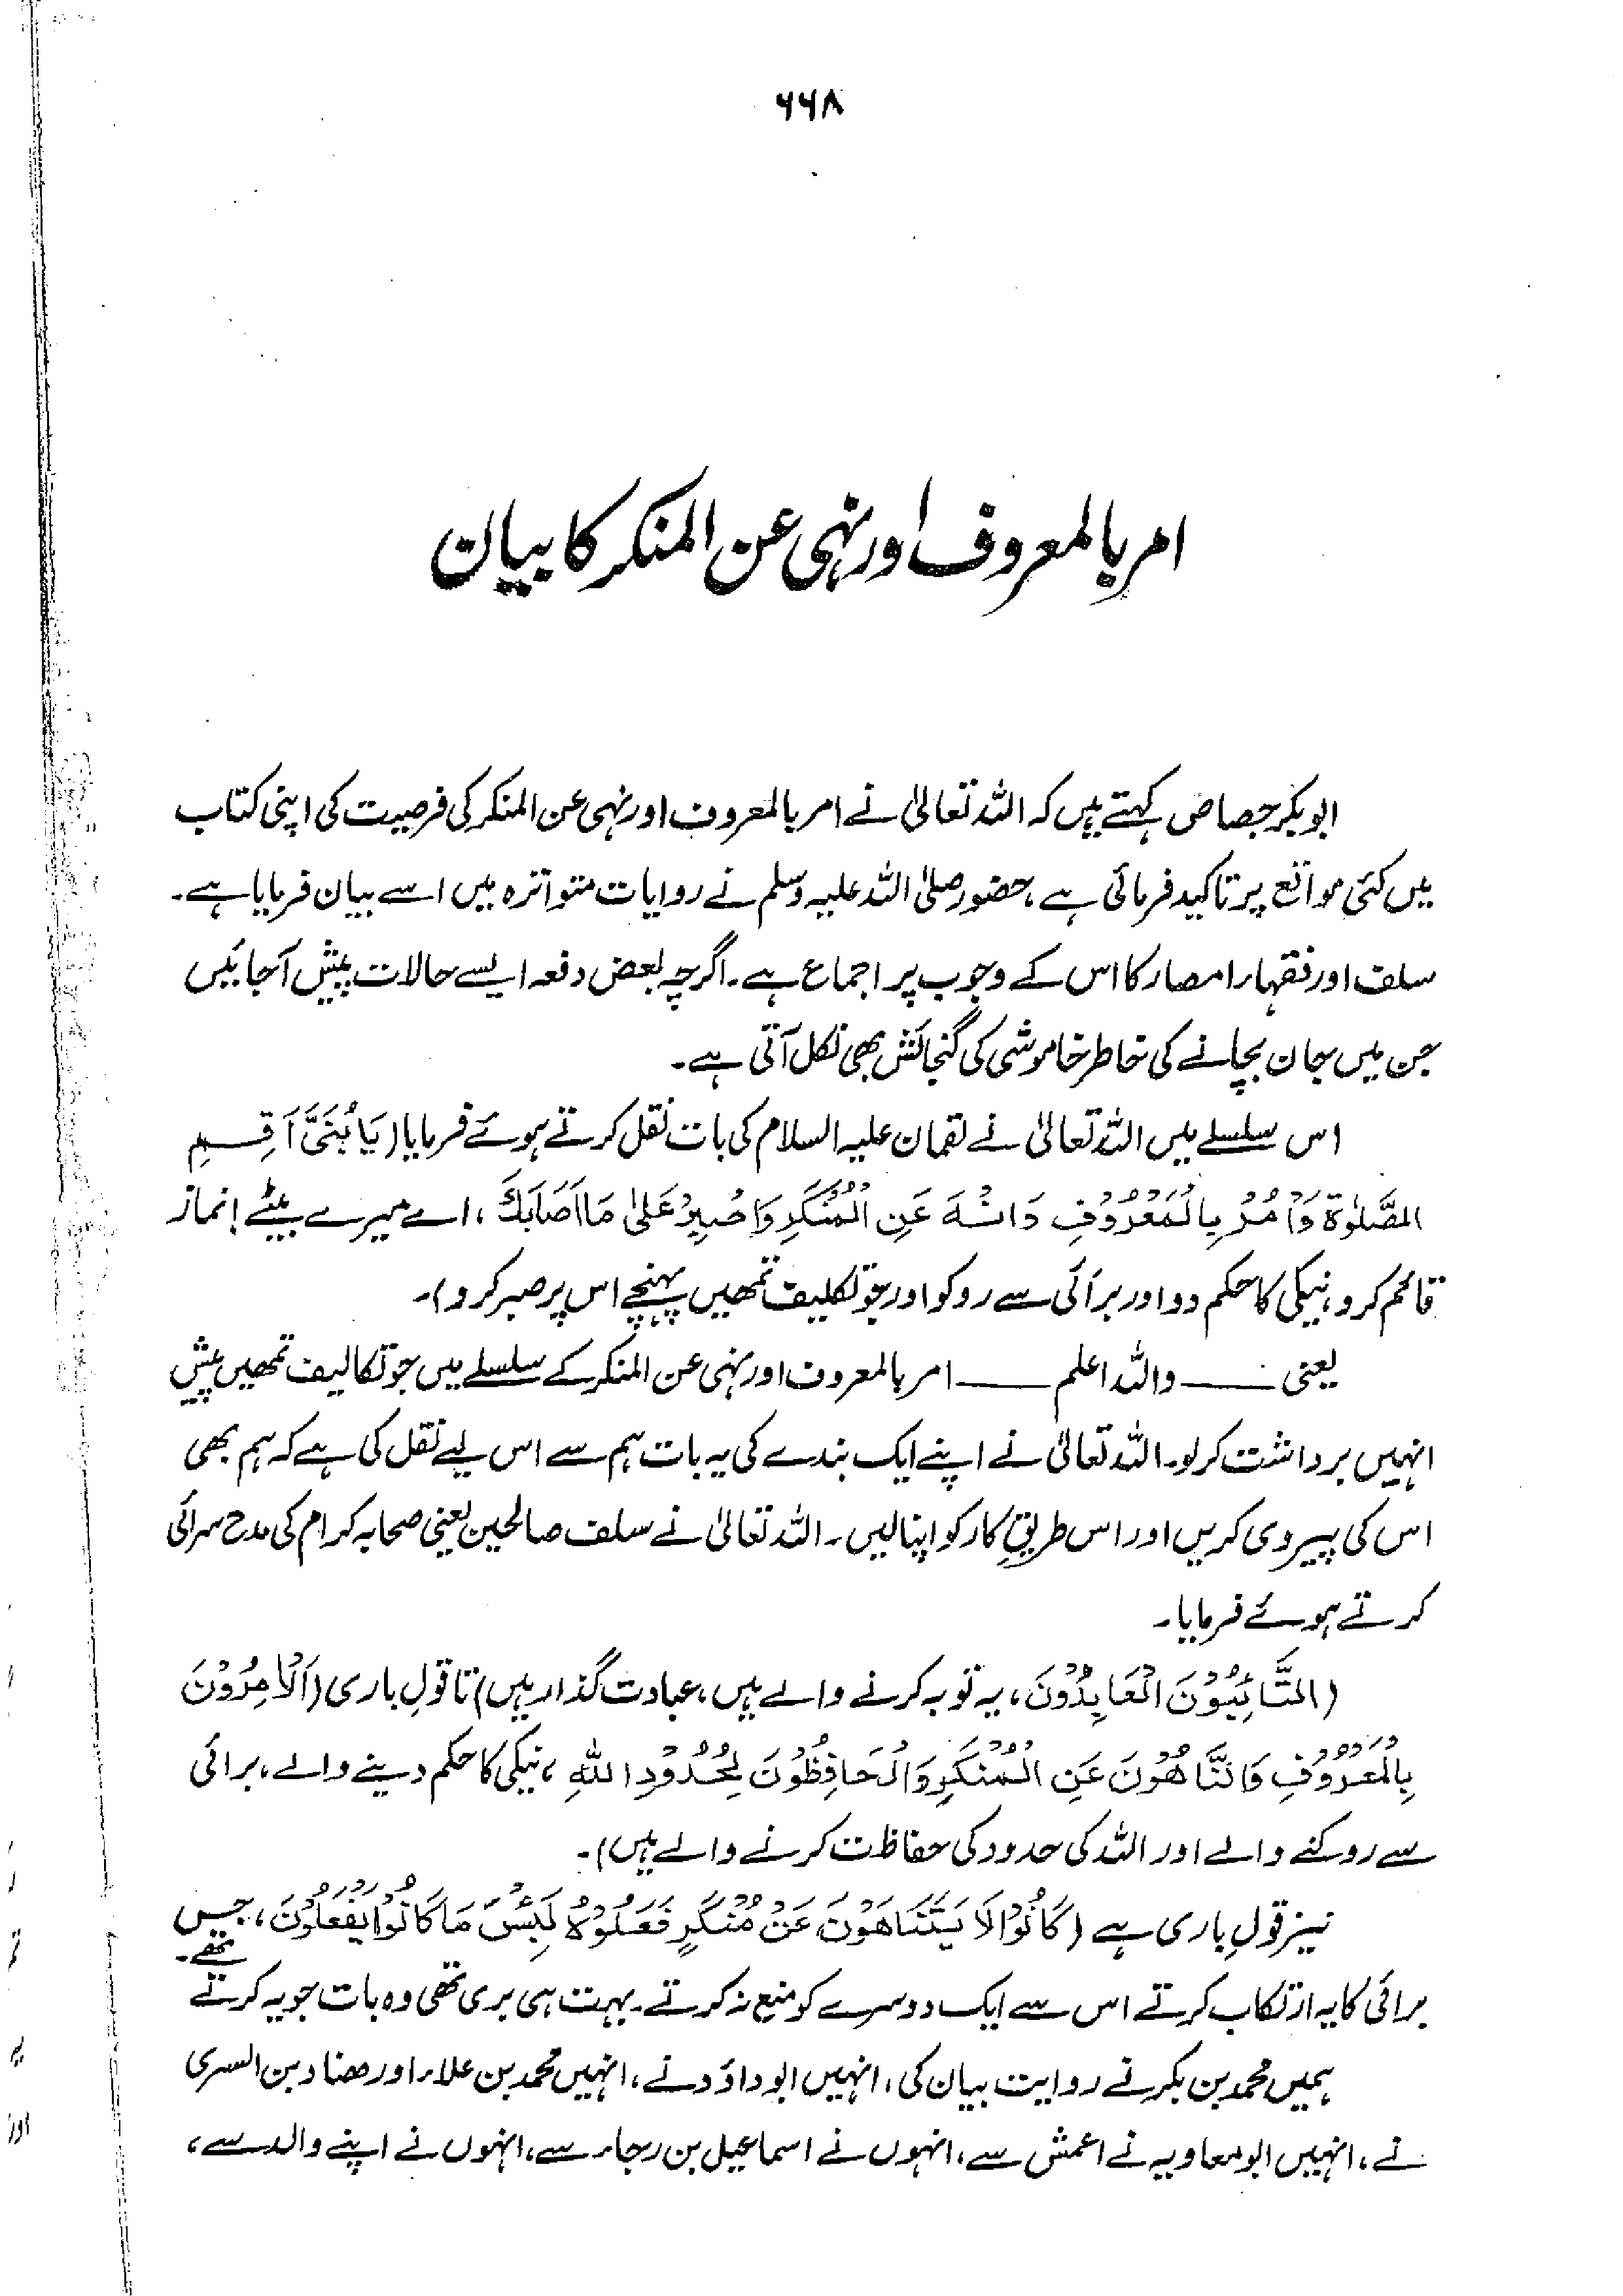 ۶۶۸
امر بالمعروف اور نہی عن المنکر کا بیان
ابوبکر جصاص کہتے ہیں کہ اللہ تعالیٰ نے امر بالمعروف اور نہی عن المنکر کی فرضیت کی اپنی کتاب
میں کئی مواقع پر تاکید فرمائی ہے، حضور صلی اللہ علیہ وسلم نے روایات متواترہ میں اسے بیان فرمایا ہے۔
سلف اور فقہاء امصار کا اس کے وجوب پر اجماع ہے۔ اگرچہ بعض دفعہ ایسے حالات پیش آجائیں
جن میں جان بچانے کی خاطر خاموشی کی گنجائش بھی نکل آتی ہے۔
اس سلسلے میں اللہ تعالیٰ نے لقمان علیہ السلام کی بات نقل کرتے ہوئے فرمایا (یَا بُنَیَّ اَقِمِ
الصَّلٰوۃَ وَاْمُرْ بِالْمَعْرُوْفِ وَانْہَ عَنِ الْمُنْکَرِ وَاصْبِرْ عَلٰی مَا اَصَابَکَ، اے میرے بیٹے! نماز
قائم کرو، نیکی کا حکم دو اور برائی سے روکو اور جو تکلیف تمھیں پہنچے اس پر صبر کرو)۔
یعنی —— واللہ اعلم —— امر بالمعروف اور نہی عن المنکر کے سلسلے میں جو تکالیف تمھیں پیش
انہیں برداشت کرلو۔ اللہ تعالیٰ نے اپنے ایک بندے کی یہ بات ہم سے اس لیے نقل کی ہے کہ ہم بھی
اس کی پیروی کریں اور اس طریقِ کار کو اپنالیں۔ اللہ تعالیٰ نے سلف صالحین یعنی صحابہ کرام کی مدح سرائی
کرتے ہوئے فرمایا۔
(التَّائِبُوْنَ الْعَابِدُوْنَ، یہ توبہ کرنے والے ہیں، عبادت گذار ہیں) تا قولِ باری (اَلْاٰمِرُوْنَ
بِالْمَعْرُوْفِ وَالنَّاھُوْنَ عَنِ الْمُنْکَرِ وَالْحَافِظُوْنَ لِحُدُوْدِ اللہِ، نیکی کا حکم دینے والے، برائی
سے روکنے والے اور اللہ کی حدود کی حفاظت کرنے والے ہیں)۔
نیز قولِ باری ہے (کَانُوْا لَا یَتَنَاھَوْنَ عَنْ مُنْکَرٍ فَعَلُوْہُ لَبِئْسَ مَا کَانُوْا یَفْعَلُوْنَ، جس
برائی کا یہ ارتکاب کرتے اس سے ایک دوسرے کو منع نہ کرتے۔ بہت ہی بری تھی وہ بات جو یہ کرتے تھے۔
ہمیں محمد بن بکر نے روایت بیان کی، انہیں ابوداؤد نے، انہیں محمد بن علاء اور ھناد بن السری
نے، انہیں ابو معاویہ نے اعمش سے، انہوں نے اسماعیل بن رجاء سے، انہوں نے اپنے والد سے،